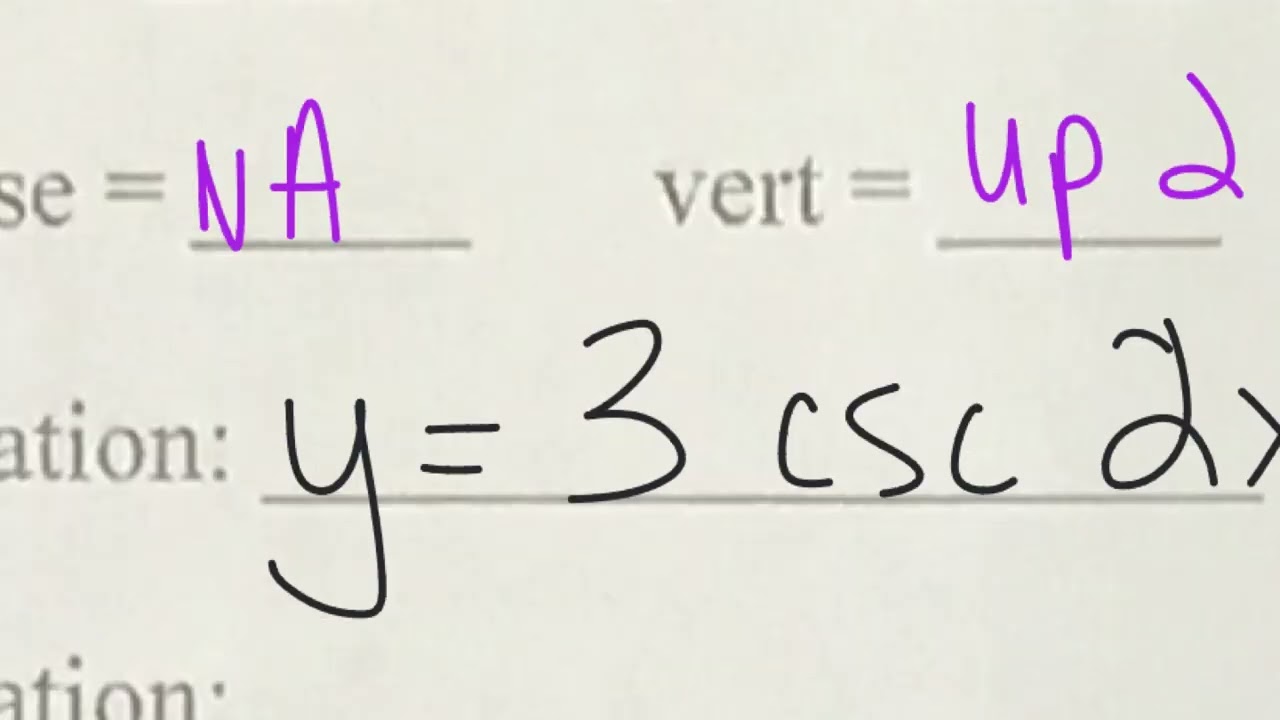 se = NA vert = up 2
ation: y = 3 csc 2x
ation: